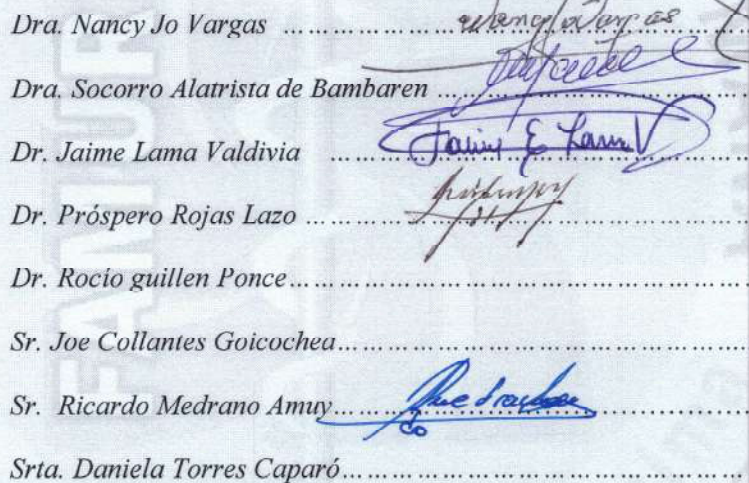 Dra. Nancy Jo Vargas ..............................
Dra. Socorro Alatrista de Bambaren ..............................
Dr. Jaime Lama Valdivia ..............................
Dr. Próspero Rojas Lazo ..............................
Dr. Rocío guillen Ponce..............................
Sr. Joe Collantes Goicochea..............................
Sr. Ricardo Medrano Amuy..............................
Srta. Daniela Torres Caparó..............................